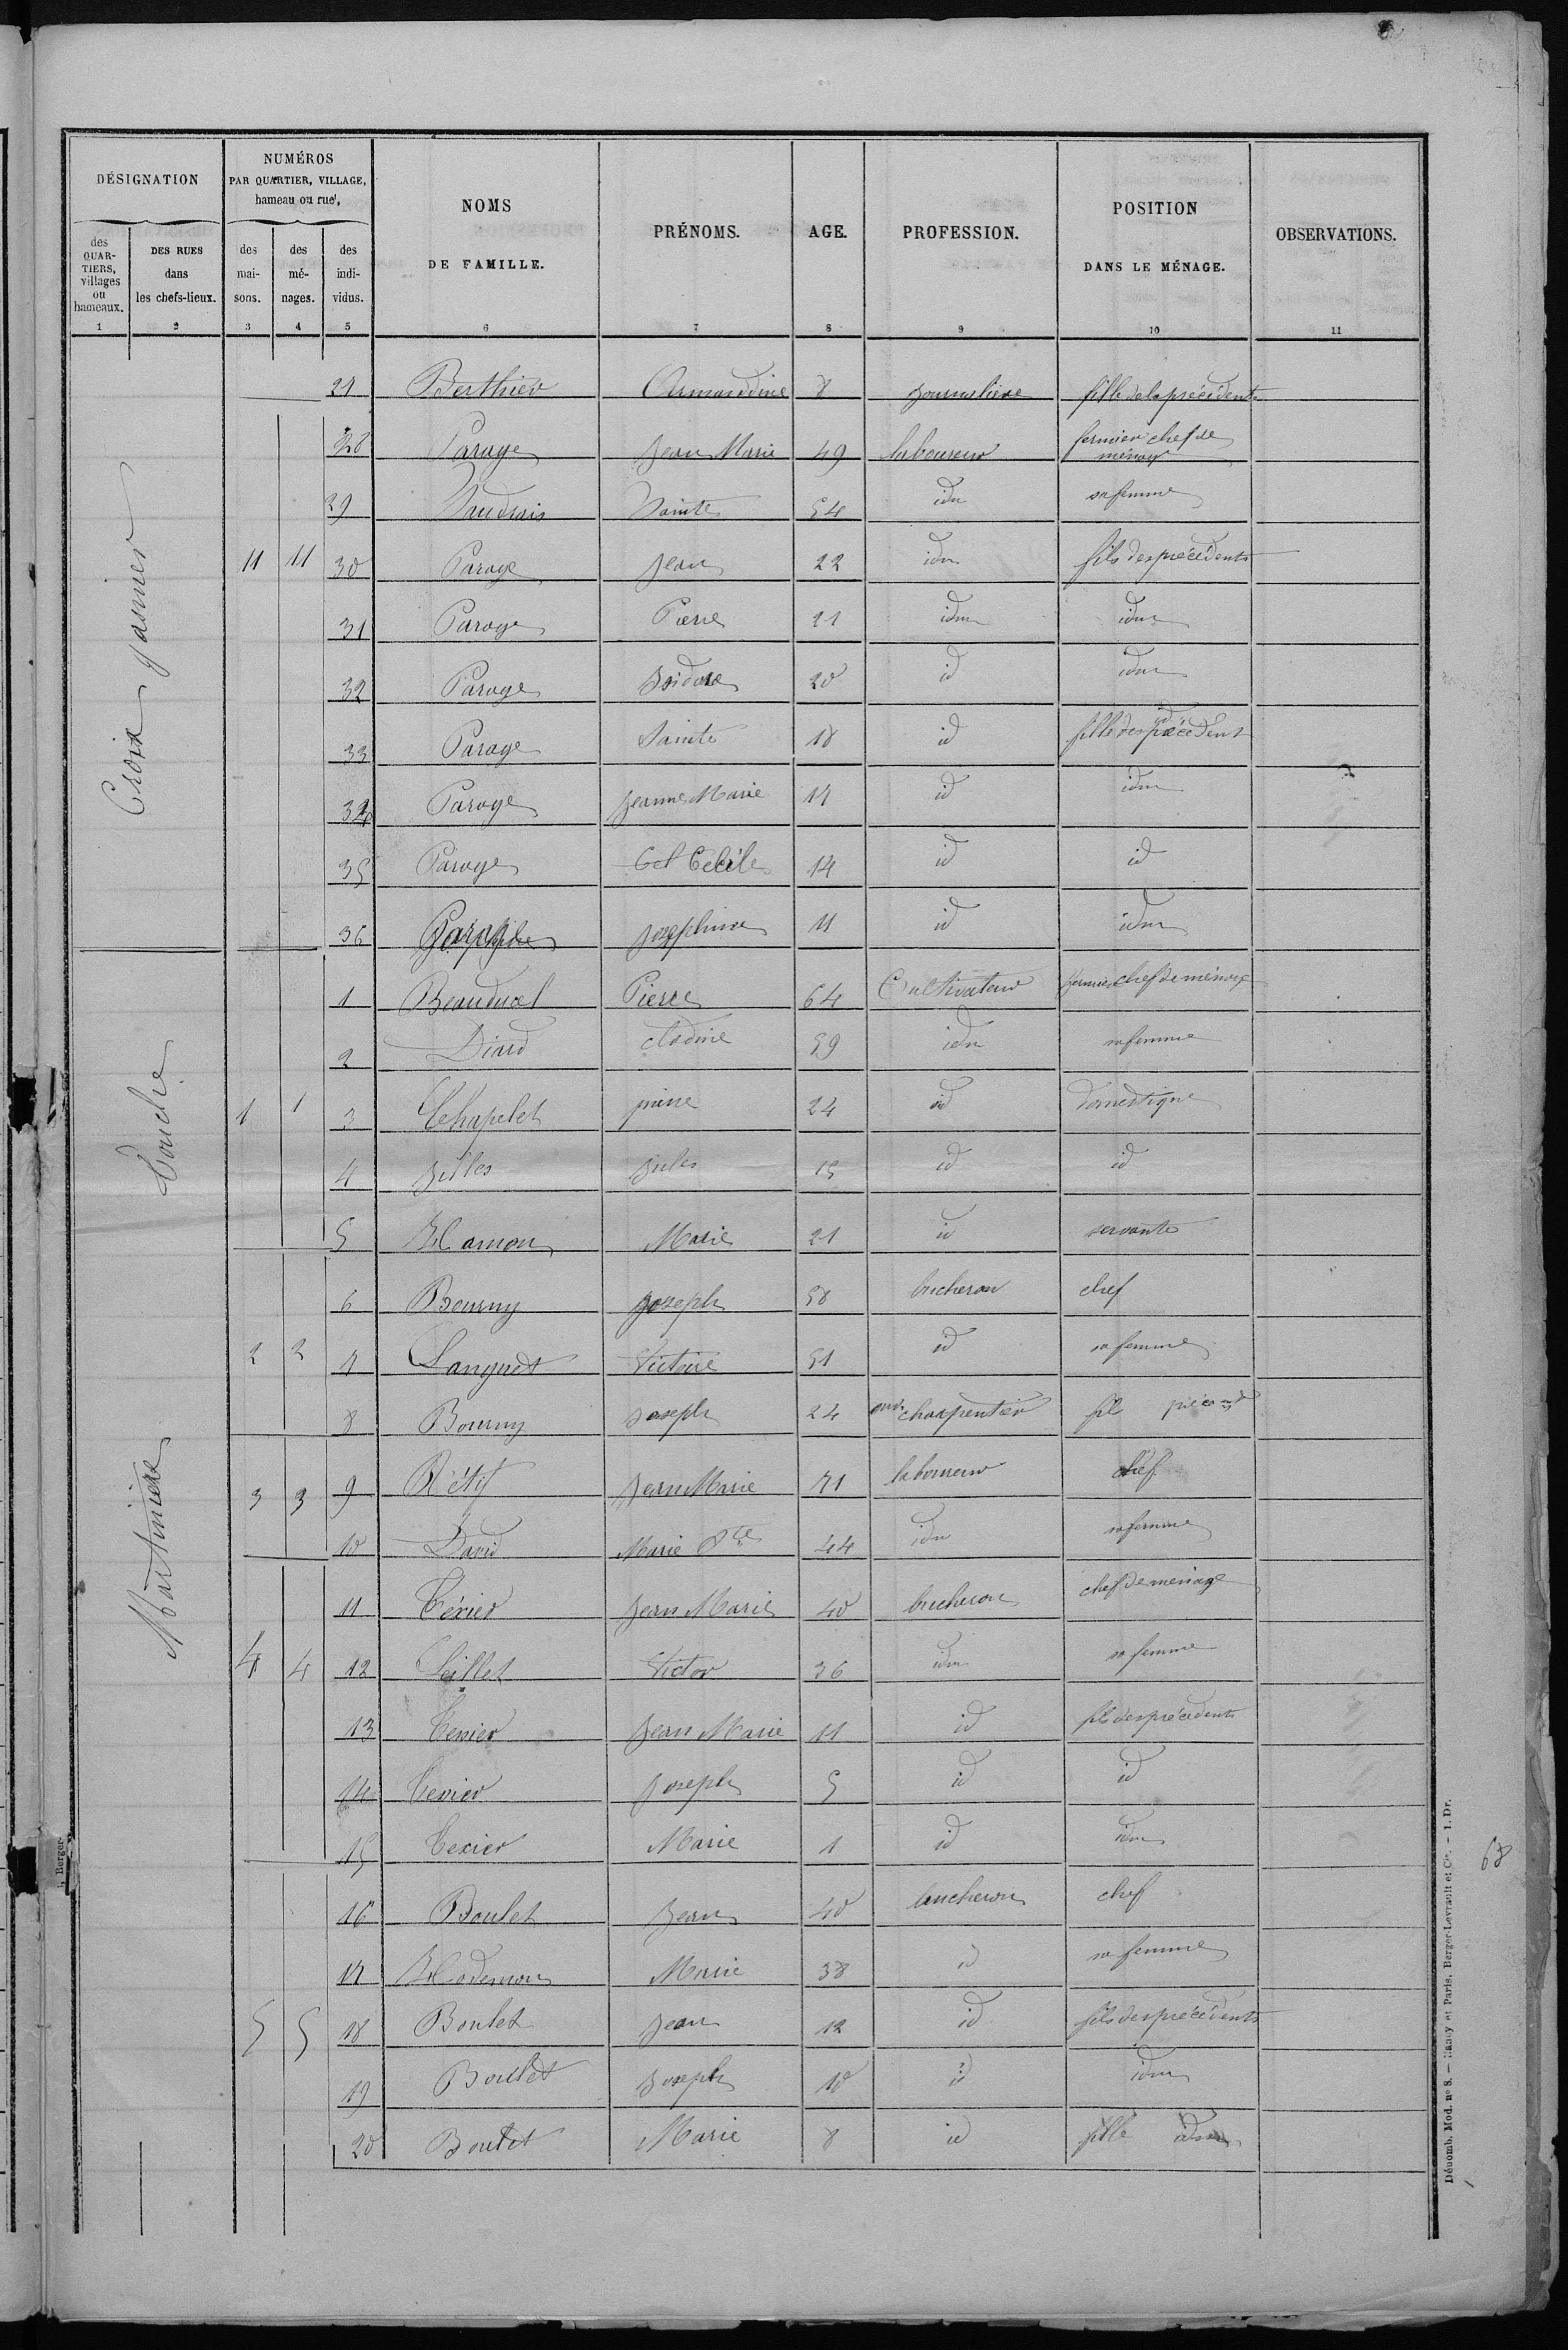 DÉSIGNATION
NUMÉROS
PAR QUARTIER, VILLAGE,
hameau ou rue,
des QUARTIERS, villages ou hameaux.
DES RUES dans les chefs-lieux.
des maisons.
des ménages.
des individus.
NOMS DE FAMILLE.
PRÉNOMS.
AGE.
PROFESSION.
POSITION DANS LE MÉNAGE.
OBSERVATIONS.
1 2 3 4 5 6 7 8 9 10 11
Croix janier
27 Berthier Armandine 8 journalière fille de la précédente
28 Paroge Jean Marie 49 laboureur fermier chef de ménage
29 Sainte 54 idm sa femme
11 11 30 Paroge Jean 22 idm fils des précédents
31 Paroge Pierre 21 idm idm
32 Paroge Isidore 20 id idm
33 Paroge Sainte 18 id fille des précédent
34 Paroge Jeanne Marie 17 id idm
35 Paroge Cécile 14 id id
36 Paroge Joséphine 11 id idm
Touche
1 Beauducel Pierre 64 Cultivateur fermier chef de ménage
2 Diard 59 idm sa femme
1 1 3 Chapelet pierre 24 id domestique
4 Gilles Jules 15 id id
5 Hamon Marie 21 id servante
Martinière
6 Bourny Joseph 58 bucheron chef
2 2 7 Languet Victoire 51 id sa femme
8 Bourny Joseph 24 charpentier fil
3 3 9 Rétif Jean Marie 71 laboureur chef
10 David Marie 44 idm sa femme
11 Texier Jean Marie 40 bucheron chef de ménage
4 4 12 Victor 36 idm sa femme
13 Texier Jean Marie 11 id fils des précédents
14 Texier Joseph 5 id id
15 Texier Marie 1 id idm
16 Boulet Jean 40 bucheron chef
17 Marie 38 id sa femme
5 5 18 Boulet Jean 12 id fils des précédents
19 Boulet Joseph 10 id idm
20 Boulet Marie 8 id fille idm
68
Dénomb. Mod. nº 8. — Nancy et Paris, Berger-Levrault et Cie. — 1. Dr.